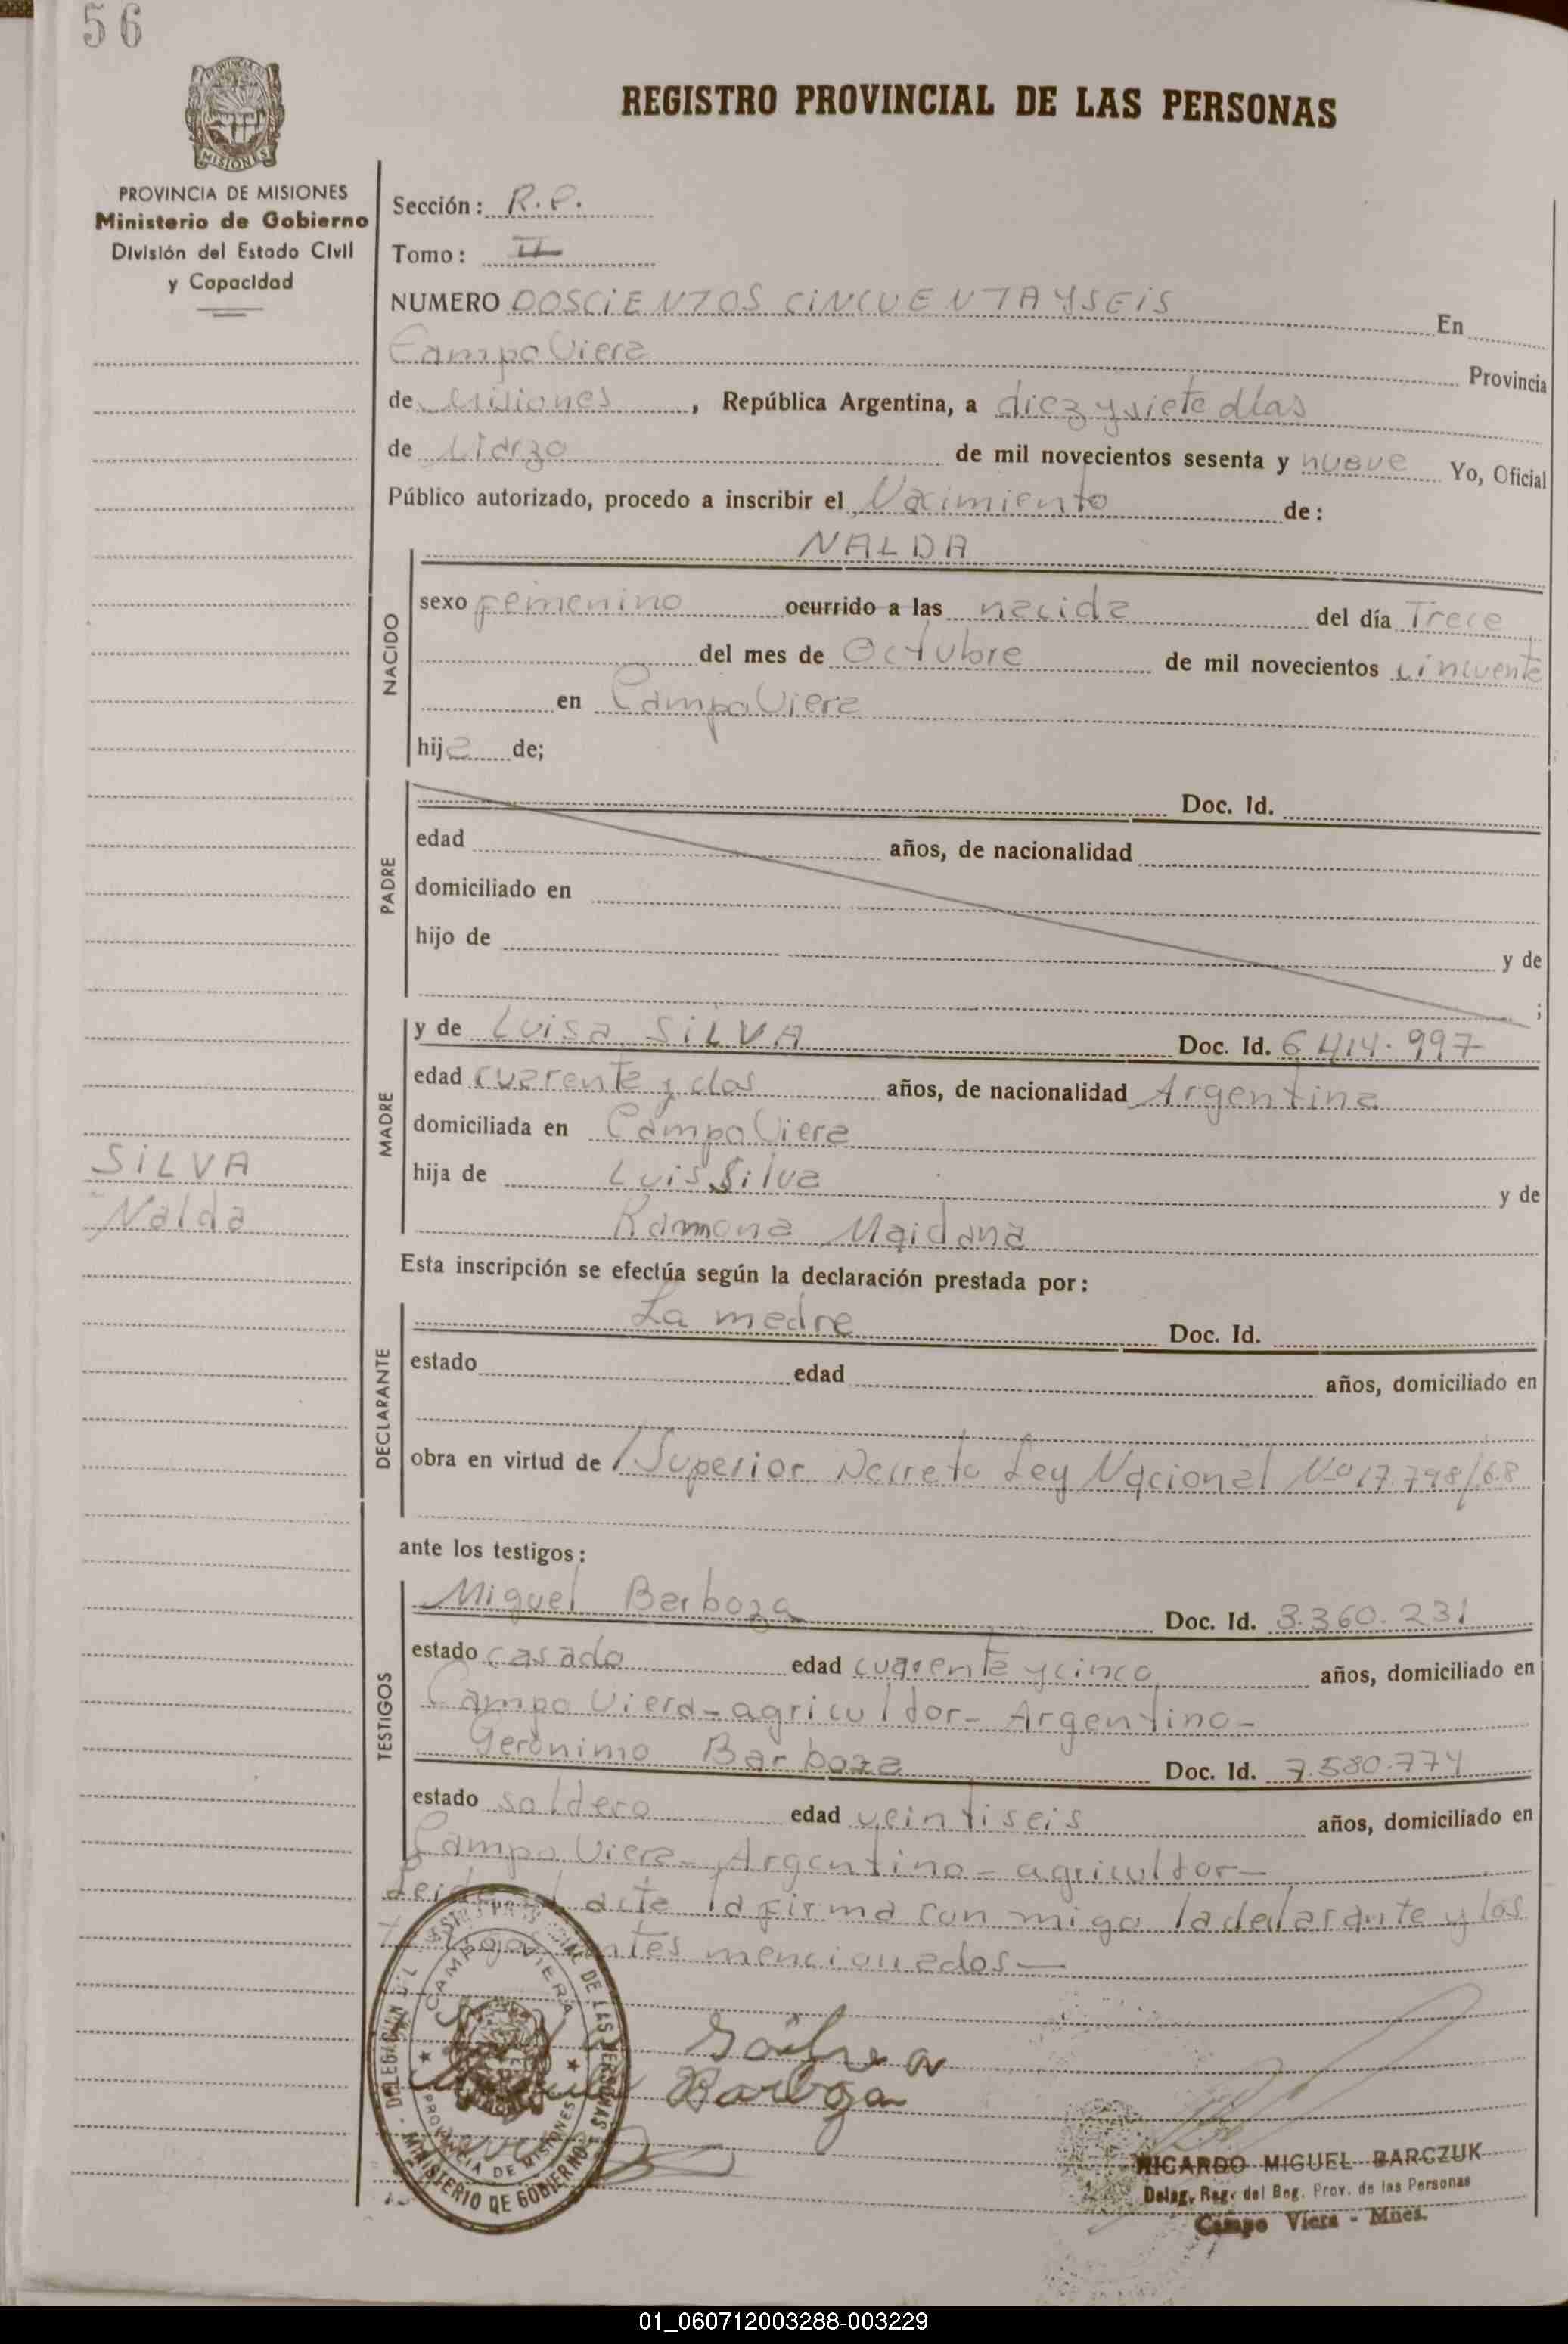 56
MISIONES
REGISTRO PROVINCIAL DE LAS PERSONAS
PROVINCIA DE MISIONES
Ministerio de Gobierno
División del Estado Civil
y Capacidad
Sección: R.P.
Tomo: II
NUMERO DOSCiENTOS CiNCUENTAYSEiS En
Campo Viera Provincia
de Misiones, República Argentina, a diez y siete días
de Marzo de mil novecientos sesenta y nueve Yo, Oficial
Público autorizado, procedo a inscribir el Nacimiento de:
NALDA
NACIDO
sexo femenino ocurrido a las nacida del día Trece
del mes de Octubre de mil novecientos cincuenta
en Campo Viera
hija de;
PADRE
Doc. Id.
edad años, de nacionalidad
domiciliado en
hijo de y de
;
MADRE
y de Luisa SiLVA Doc. Id. 6.414.997
edad cuarenta y dos años, de nacionalidad Argentina
domiciliada en Campo Viera
SiLVA
Nalda
hija de Luis Silva y de
Ramona Maidana
Esta inscripción se efectúa según la declaración prestada por:
DECLARANTE
La madre Doc. Id.
estado edad años, domiciliado en
obra en virtud de /Superior Decreto Ley Nacional Nº 17.798/68
ante los testigos:
TESTIGOS
Miguel Barboza Doc. Id. 3.360.231
estado casado edad cuarenta y cinco años, domiciliado en
Campo Viera-agricultor-Argentino-
Gerónimo Barboza Doc. Id. 7.580.774
estado soltero edad veintiseis años, domiciliado en
Campo Viera-Argentino-agricultor-
acta la firma con migo la declarante y los
testigos antes mencionados—
DELEGACION DEL REGISTRO PROVINCIAL DE LAS PERSONAS
CAMPO VIERA
PROVINCIA DE MISIONES
MINISTERIO DE GOBIERNO
Barboza
RICARDO MIGUEL BARCZUK
Deleg. Reg. del Reg. Prov. de las Personas
Campo Viera - Mnes.
01_060712003288-003229